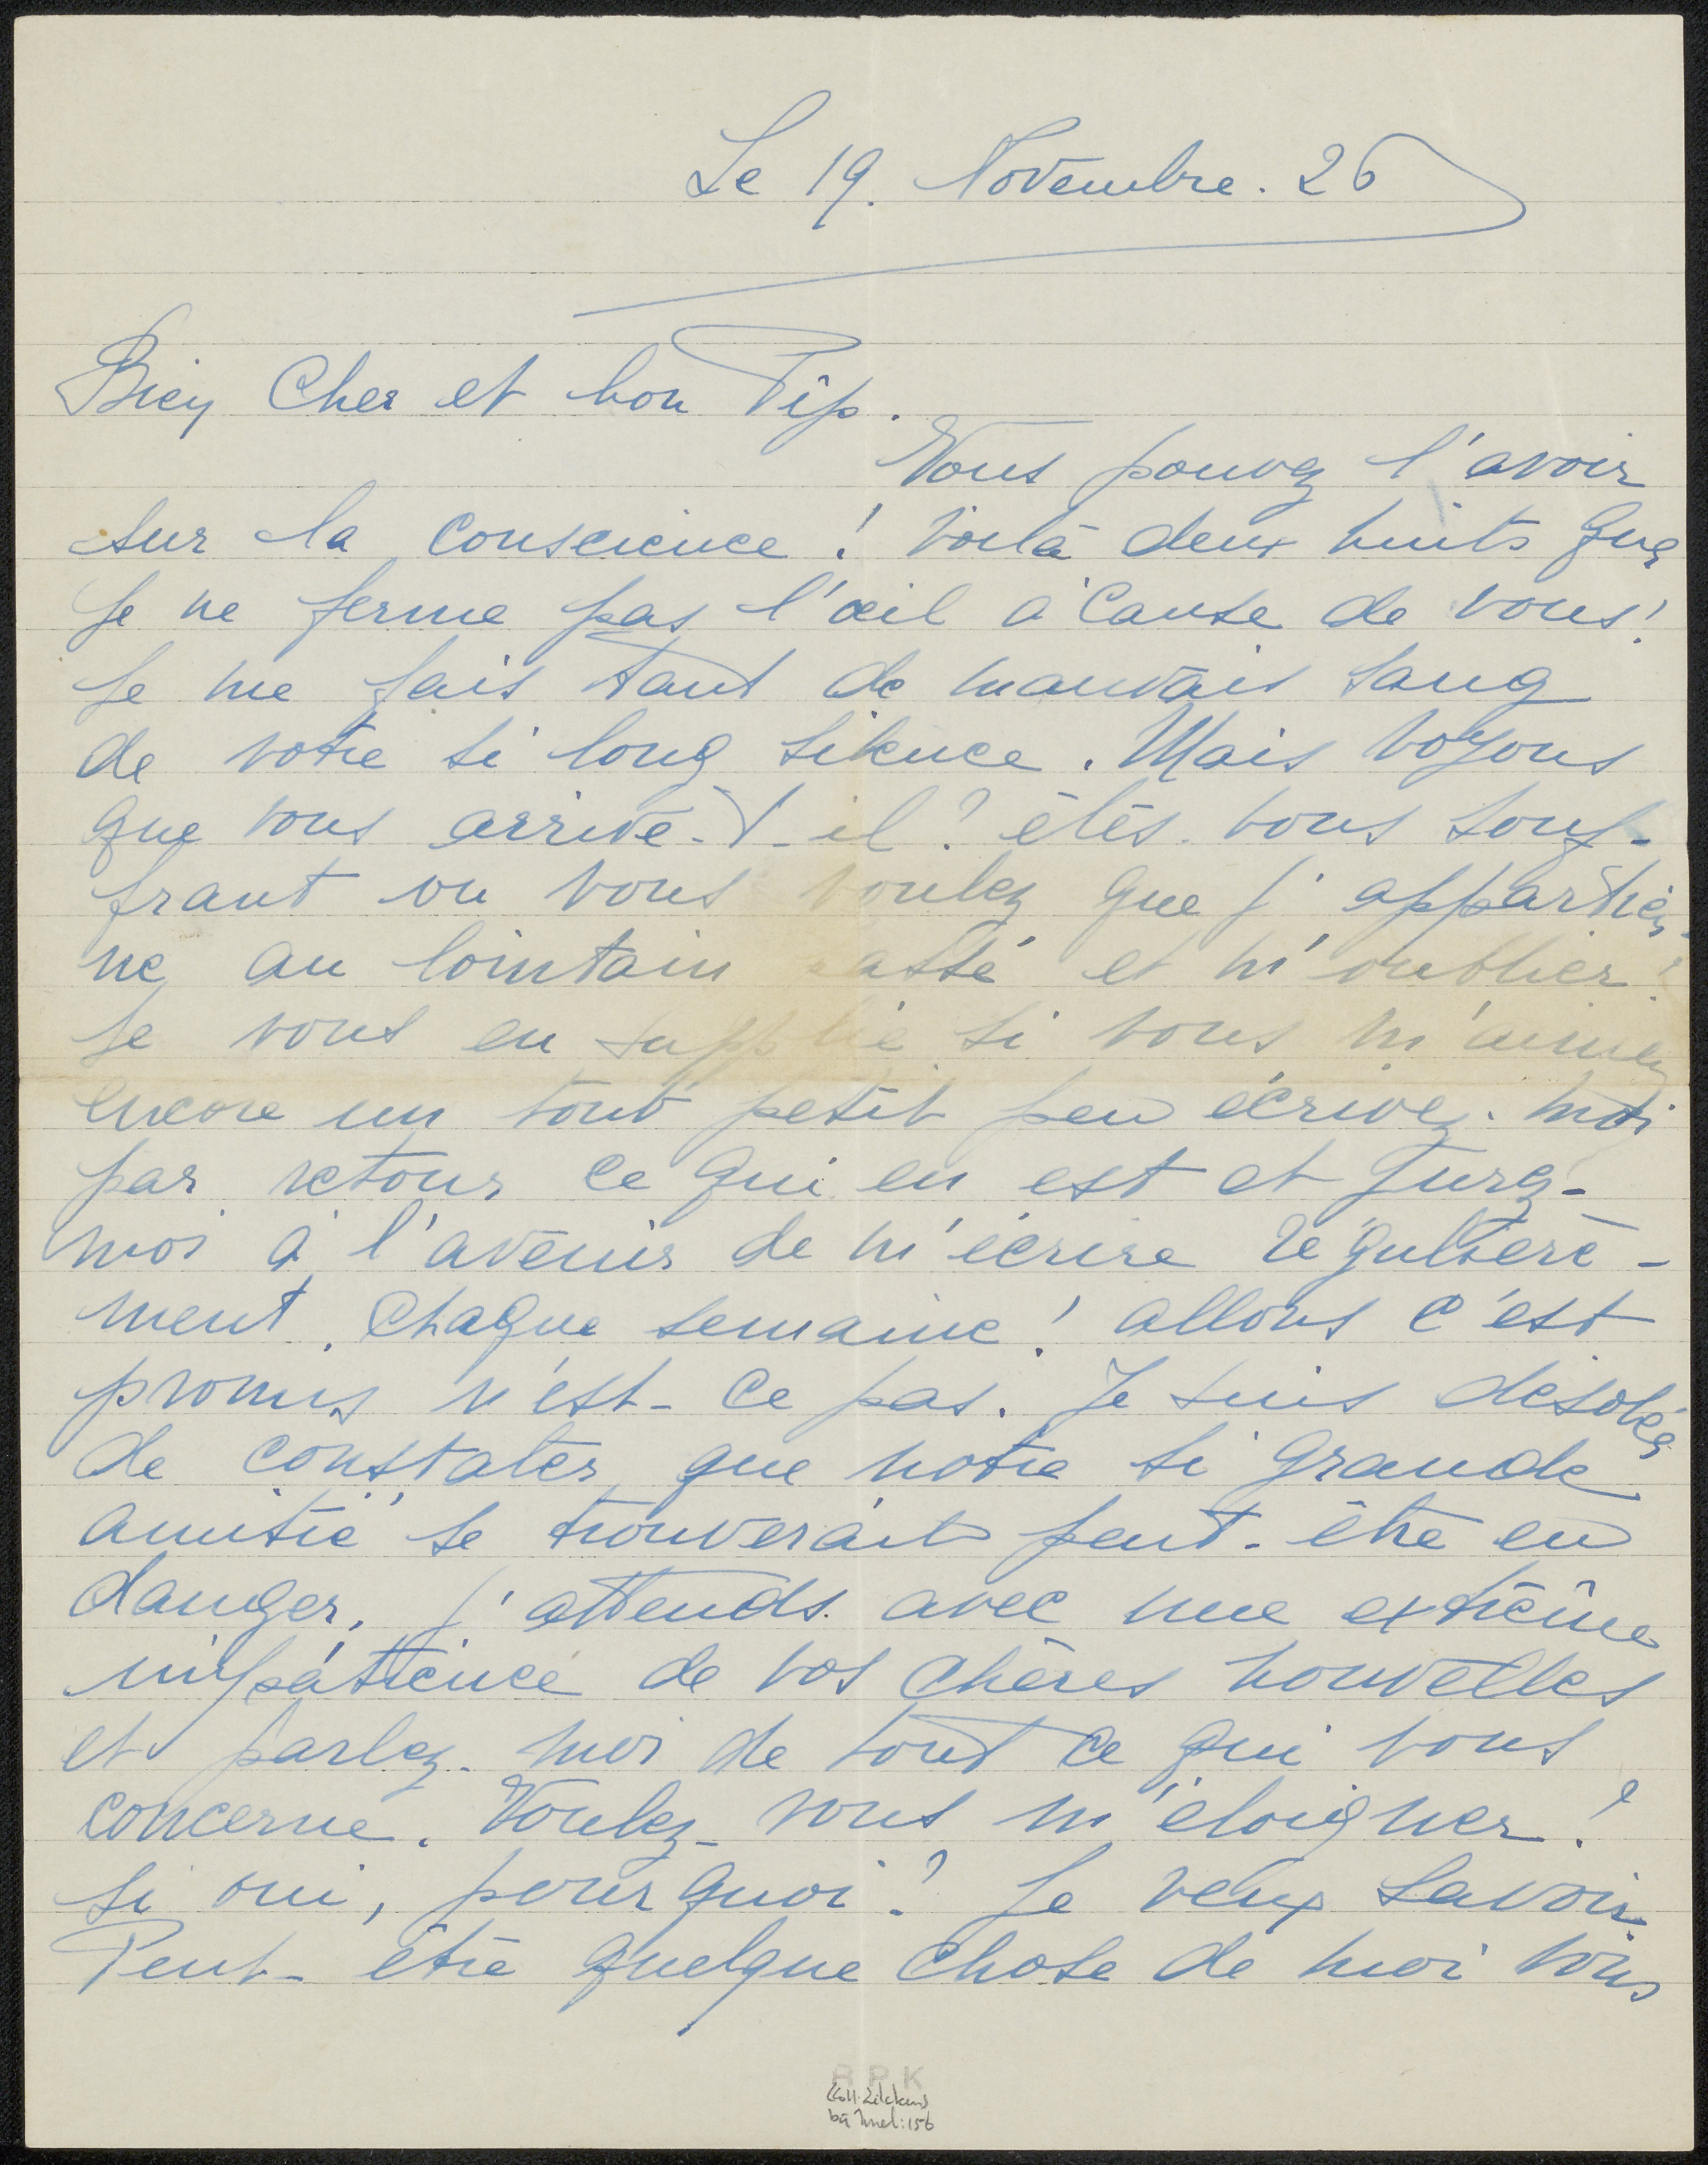 Le 19. Novembre. 26
Bien Cher et bon Pip.
Vous pouvez l'avoir
sur la conscience! Voilà deux nuits que
je ne ferme pas l'œil à cause de vous!
Je me fais tant de mauvais sang
de votre si long silence. Mais voyons
que vous arrive-t-il? êtes-vous souf-
frant ou vous voulez que j'appartien-
ne au lointain passé et m'oublier?
Je vous en supplie si vous m'aimez
encore un tout petit peu écrivez-moi
par retour ce qui en est et jurez-
moi à l'avenir de m'écrire régulière-
ment. Chaque semaine! allons c'est
promis n'est-ce pas. Je suis désolée
de constater que notre si grande
amitié se trouverait peut-être en
danger. J'attends avec une extrême
impatience de vos chères nouvelles
et parlez-moi de tout ce qui vous
concerne. Voulez-vous m'éloigner?
si oui, pourquoi? Je veux savoir.
Peut-être quelque chose de moi vous
R P K
Coll. Zilcken